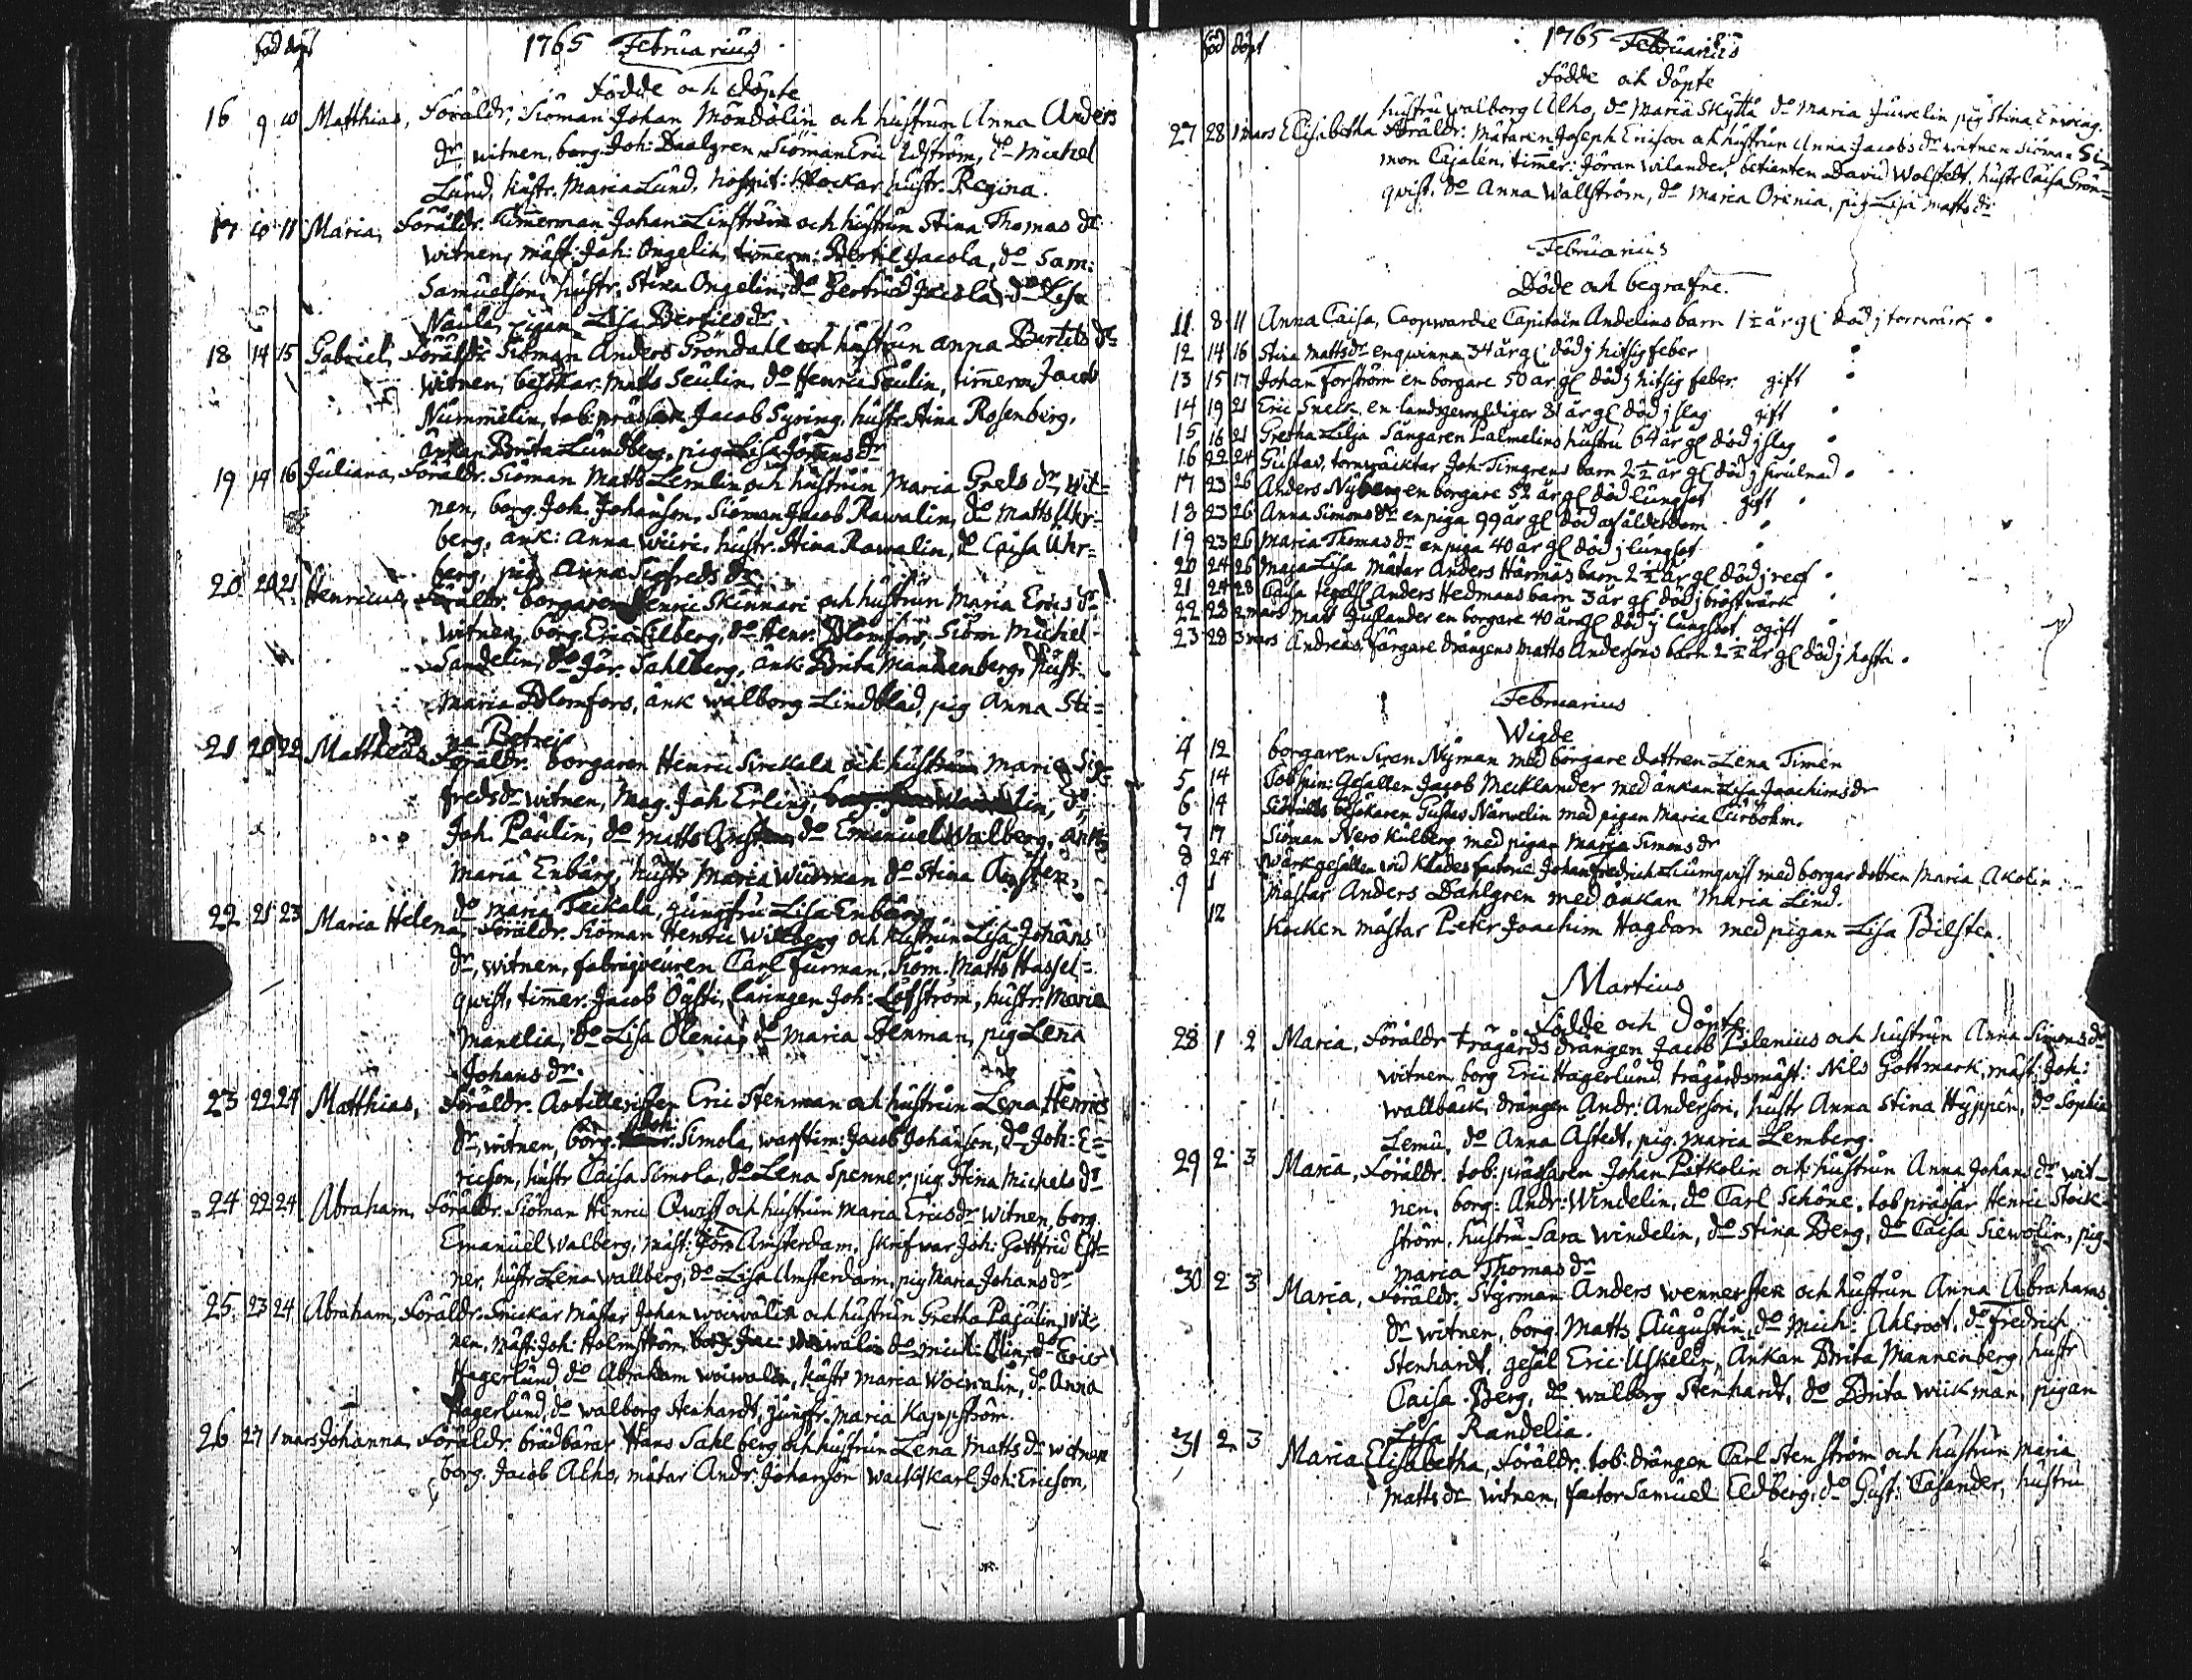 föd döpt 1765 Februarius
födde och döpte
16 9 10 Matthias, Föräldr: Siöman Johan Möndolin och hustrun Anna Anders
dr witnen, borg. Joh: Daalgren, Siöman Eric Edström, do Michel
Lund, hustr. Maria Lund, hospit: klockar hustr. Regina.
17 10 11 Maria, Föräldr. Timmerman Johan Linström och hustrun Stina Thomas dr
witnen, mäst: Joh: Ongelin, timerm: Bertil Jacola, do Sam:
Samuelson, hustr. Stina Ongelin, do Gertrud Jacola, do Lisa
Naula, pigan Lisa Bertilsdr
18 14 15 Gabriel, Föräldr. Siöman Anders Gröndahl och hustrun Anna Bertils dr
witnen, besökar. Matts Seulin, do Henric Seulin, timerm Jacob
Nummelin, tob: prässar Jacob Syring, hustr. Stina Rosenberg,
änkan Brita Lundberg, pigan Lisa Jörens dr
19 14 16 Juliana, Föräldr. Siöman Matts Lemlin och hustrun Maria Grels dr, wit=
nen, borg. Joh. Johanson, Siöman Jacob Rawalin, do Matts Uhr=
berg, änk: Anna Wiiri, hustr. Stina Rawalin, do Caisa Uhr=
berg, pig Anna Sigfreds dr
20 20 21 Henricus, Föräldr. borgaren Henric Skinnari och hustrun Maria Erics dr
witnen, borg. Eric Lilberg, do Henr. Blomfors, Siöm Michel
Sandelin, do Jör. Sahlberg, änk Brita Mannenberg, hust.
Maria Blomfors, änk Walborg Lindblad, pig Anna Sti=
na Petrei
21 20 22 Mattheus Föräldr. borgaren Henric Sirckala och hustrun Maria Sig
fredsdr witnen, Mag. Joh Erling, do
Joh. Paulin, do Matts do Emanuel Walberg, änk
Maria Enbärg, hustr Maria Wiikman do Stina
do Maria Teckala, jungfru Lisa Enbärg
22 21 23 Maria Helena, Föräldr. Siöman Henric Willberg och hustrun Lisa Johans
dr, witnen, fabriqveuren Carl furman, Siöm. Matts Hassel=
qwist, timer. Jacob Öysti, läringen Joh: Löfström, hustr. Maria
Manelia, do Lisa Olenia, do Maria Benman, pig Lena
Johans dr.
23 22 24 Matthias, Föräldr. Artilleristen Eric Stenman och hustrun Lena Henrics
dr, witnen, borg. Joh: Simola, warftim: Jacob Johanson, do Joh: E=
ricson, hustr Caisa Simola, do Lena Spenner, pig. Stina Michels dr
24 22 24 Abraham, Föräldr. Siöman Henric Qwist och hustrun Maria Ericsdr witnen, borg.
Emanuel Walberg, mäst: Jöra Amsterdam, skrifvar Joh: Gottfrid Est=
ner, hustr Lena Wallberg, do Lisa Amsterdam, pig Maria Johans dr
25 23 24 Abraham, Föräldr. Snickar mästar Johan Woiwalin och hustrun Gretha Pajulin, wit=
nen, mäst: Joh: Holmström, do Mich: Olin, do Eric
Hagerlund, do Abraham Woiwalin, hustr Maria Woiwalin, do Anna
Hagerlund, do Walborg Stenhardt, jungfr. Maria Kappström.
26 27 1 mars Johanna, Föräldr. brädbärar Hans Sahlberg och hustrun Lena Matts dr witnen
borg. Jacob Alho, mätar Andr. Johanson wachtkarl Joh: Ericson,
föd döpt 1765 Februarius
födde och döpte
hustru Walborg Alho, do Maria Skyttä do Maria Juvelin pig Stina Enroing.
27 28 1 mars Elisabetha Föräldr: Mätaren Joseph Ericson och hustrun Anna Jacobs dr witnen Siöman Si=
mon Cajalén, timer: Jöran Wilander, betienten David Wolstedt, hustr Caisa Grön=
qvist, do Anna Wallström, do Maria Orenia, pig Lisa Matts dr
Februarius
Döde och begrafne.
11 8 11 Anna Caisa, Coopwardie Capitain Andelins barn 1½ år gl död j
12 14 16 Stina Mattsdr en qwinna 34 år gl död j hitsig feber
13 15 17 Johan Forström en borgare 50 år gl död j hitsig feber. gift
14 19 21 Eric Snell, en landsgewaldiger 81 år gl död j slag gift
15 16 21 Gretha Lilja Sångaren Palmelins hustru 64 år gl död j slag
16 22 24 Gustav, tornwäcktar Joh. Timgrens barn 2½ år gl död j swulnad
17 23 26 Anders Nyberg en borgare 52 år gl död lungsot gift
18 23 26 Anna Simons dr en piga 99 år gl död af ålderdom
19 23 26 Maria Thomas dr en piga 40 år gl död j lungsot
20 24 26 Maja Lisa Mätar Anders Härmäs barn 2½ år gl död j
21 24 28 Caisa tegelsl Anders Hedmans barn 3 år gl död j bröstwärk
22 28 2 mars Matt Juslander en borgare 40 år gl död j lungsot ogift
23 28 3 mars Andreas, färgare drängens Matts Andersons barn 2½ år gl död j hosta
Februarius
Wigde
4 12 borgaren Sven Nyman med borgare dottren Lena Timen
5 14 Tob spin: Gesällen Jacob Mecklander med änkan Lisa Joachims dr
6 14 besökaren Gustav Närwelin med pigan Maria Cuvbohm.
7 17 Siöman Nero Kulberg med pigan Maria Simons dr
8 24 wärkgesällen wid Klädesfactorie Johan Fredrich Liumqvist med borgar dottren Maria Akolin
9 1 Mästar Anders Dahlgren med änkan Maria Lind.
12 Kocken mästar Peter Joachim Hagdorn med pigan Lisa Bilsten.
Martius
Födde och döpte
28 1 2 Maria, Föräldr trägårds drängen Jacob Pilenius och hustrun Anna Simons dr
witnen borg Eric Hagerlund, trägårdsmäst: Nils Gottmark, mäst: Joh:
Wallbäck, drängen Andr: Anderson, hustr Anna Stina Hyppin, do Sophia
Lemu, do Anna Astedt, pig. Maria Lemberg.
29 2 3 Maria, Föräldr. tob: prässaren Johan Pitkolin och hustrun Anna Johans dr wit=
nen, borg: Andr: Windelin, do Carl Schöne, tob prässar Henric Stock=
ström. hustru Sara Windelin, do Stina Berg, do Caisa Siewolin, pig.
Maria Thomas dr
30 2 3 Maria, Föräldr. Styrman Anders Wennersten och hustrun Anna Abrahams
dr witnen, borg. Matts Augustin, do Mich: Ahlroot, do Fredrich
Stenhardt, gesäl Eric Uskelin, Änkan Brita Mannenberg, hustr
Caisa Berg, do Walborg Stenhardt, do Brita Wiikman, pigan
Lisa Randelia.
31 2 3 Maria Elisabetha, Föräldr. tob: drängen Carl Stenström och hustrun Maria
Matts dr witnen, factor Samuel Eldberg, do Gust: Casander, hustru